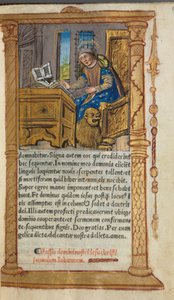 demnabitur. Signa autem eos qui crediderint
hec sequentur. In nomine meo demonia eiicient
linguis loquentur novis serpentes tollent: et
si mortiferum quid biberint non eis nocebit
Super egros manus imponent et bene habebunt
Et dominus quidem iesus postquam locutus est
eis assumptus est in celum et sedet a dextris
dei. Illi autem profecti predicaverunt ubique
domino cooperante et sermonem confirmante
sequentibus signis. Deo gratias. Per evangelica
dicta deleantur nostra delicta. amen.
Passio domini nostri iesu christi
secundum Iohannem.